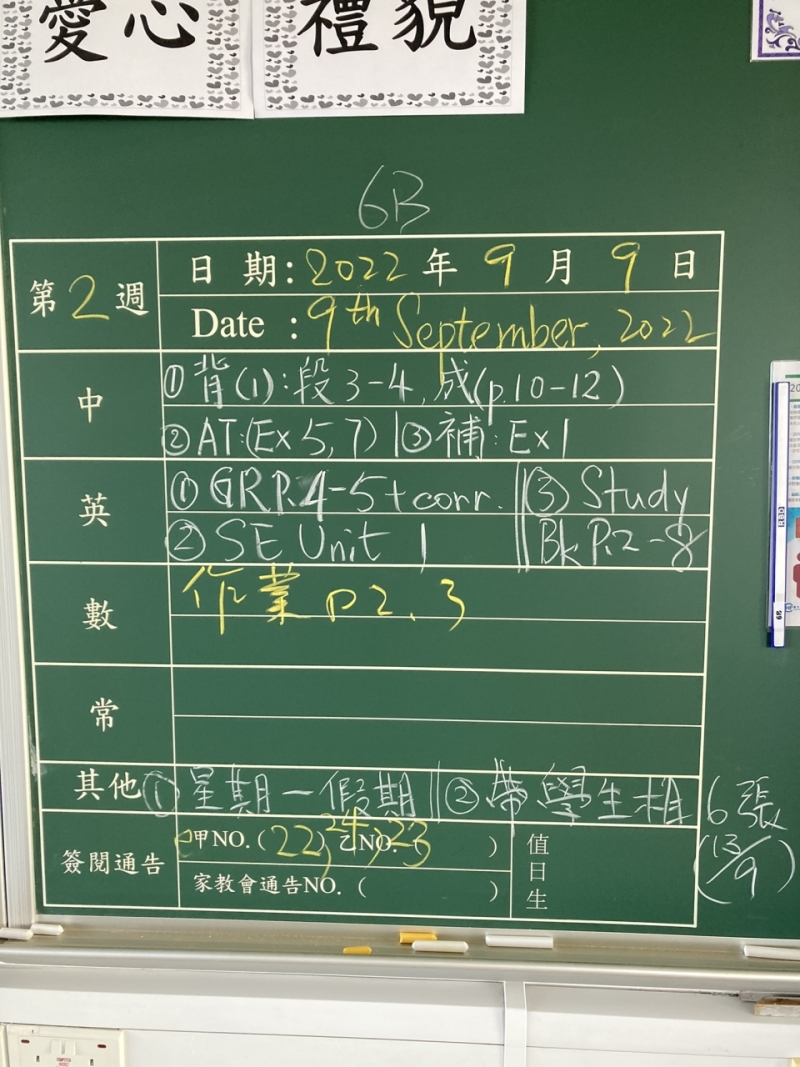 愛心
禮貌
6B
第2週
日期：2022年9月9日
Date : 9th September, 2022
中
①背(1)：段3-4, 成(p.10-12)
②AT:(Ex 5,7) | ③補：Ex 1
英
①GR P.4-5+corr. || ③Study
②SE Unit 1 || Bk P.2-8
數
作業 p2.3
常
其他
①星期一假期 || ②帶學生相 6張
(13/9)
簽閱通告
甲NO.(22, 24, 23 乙NO. )
家教會通告NO.( )
值日生